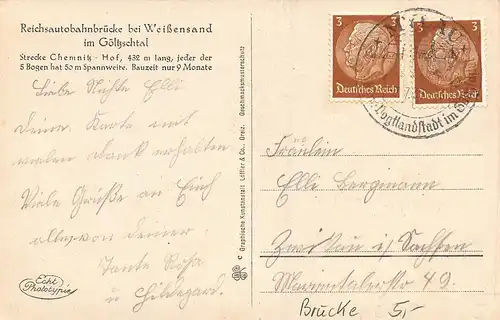 Reichsautobahnbrücke bei Weißensand
im Göltzschtal
Strecke Chemnitz - Hof, 432 m lang, jeder der
5 Bogen hat 50 m Spannweite. Bauzeit nur 9 Monate
Liebe Elli
Deine Karte mit
vielen Dank erhalten
Viele Grüße an Euch
alle, von Deiner
Tante Rösa
u Hildegard.
Echt
Photôtypie
© Graphische Kunstanstalt Löffler & Co., Greiz. Geschmacksmusterschutz
3
Deutsches Reich
3
Deutsches Reich
Vogtlandstadt im
Fräulein
Elli Bergmann
Zwickau i/ Sachsen
49.
Brücke 5,-